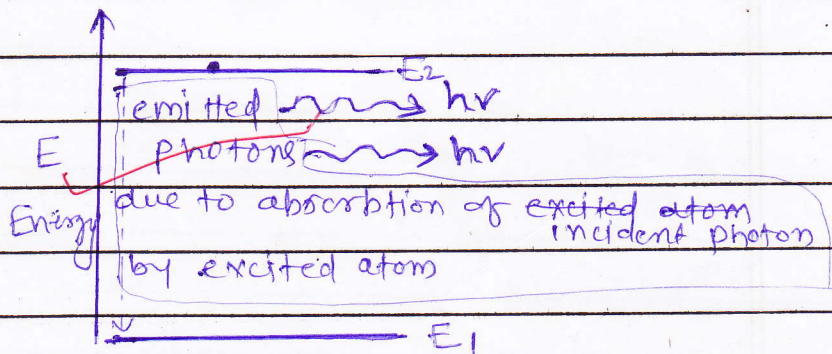 E2
emitted hν
E photons hν
Energy due to abscrbtion of excited atom
incident photon
by excited atom
E1